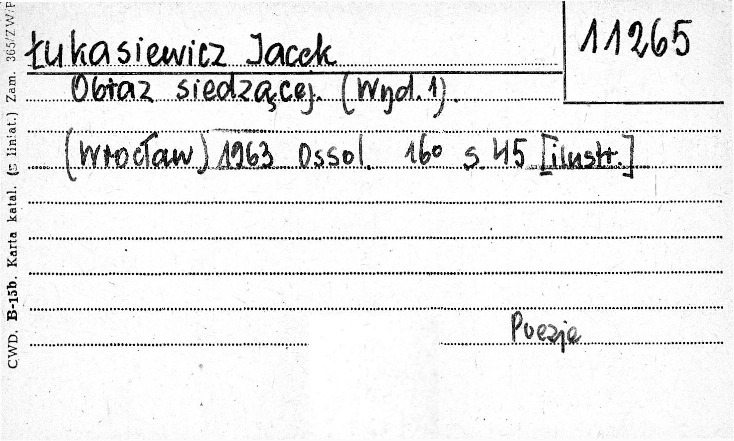 Łukasiewicz Jacek
11265
Obraz siedzącej. (Wyd. 1).
(Wrocław) 1963 Ossol. 16° s. 45 [ilustr.]
Poezje
CWD. B-15b. Karta katal. (z liniat.) Zam. 365/ZW/P